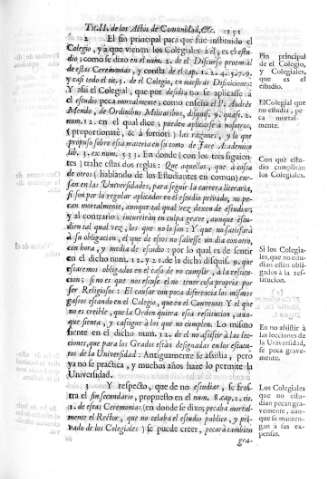 Tit. II. de los Actos de Comunidad, &c.
2 El fin principal para que fue instituido el
Colegio, y à que vienen los Colegiales à èl, es el estu-
dio; como se dixo en el num. 2. de el Discurso proemial
de estas Ceremonias, y consta de el cap. 1. 2. 4. 5. 7. 9.
y casi todo el tit. 5. de el Colegio,
Y assi el Colegial, que por desidia no se aplicasse à
el estudio peca mortalmente, como enseña el P. Andrès
Mendo, de Ordinibus Militaribus, disquis.
num. 12. en el qual dice: puede aplicarse à nosotros,
(proportionatè, & à fortiori) las razones, y lo que
propuso sobre esta materia en su tomo de Iure Academico
lib. 3. en num. 533. En donde (con los tres siguien-
tes) trahe estas dos reglas: Que aquellos, que à costa
de otros (hablando de los Estudiantes en comun) cur-
san en las Universidades, para seguir la carrera literaria,
si son por lo regular aplicados en el estudio privado, no pe-
can mortalmente, aunque tal qual vez dexen de estudiar;
y al contrario: incurrirán en culpa grave, aunque estu-
dien tal qual vez, los que no lo son: Y que no satisfará
à su obligacion, el que de ellos no salvasse un dia con otro,
una hora, y media de estudio: por lo qual es de sentir
en el dicho num. 12. y 2. de la dicha disquis.
estaremos obligados en el caso de no cumplir, à la restitu-
cion; si no es que nos escuse el no tener cosa propria por
ser Religiosos: El causar sin poca diferencia los mismos
gastos estando en el Colegio, que en el Convento: Y el que
no es creible, que la Orden quiera esta restitucion, aun-
que sienta, y castigue à los que no cumplen. Lo mismo
siente en el dicho num. 12. de el no assistir à las lec-
ciones, que para los Grados estàn designadas en los estatu-
tos de la Universidad: Antiguamente se assistia, pero
ya no se practica, y muchos años hace lo permite la
Universidad.
3 Y respecto, que de no estudiar, se frus-
tra el fin secundario, propuesto en el num. 8. cap. 2. tit.
1. de estas Ceremonias: (en donde se dixo; pecaba mortal-
mente el Rector, que no celaba el estudio publico, y pri-
vado de los Colegiales) se puede creer, pecarà tambien
gra-
Fin principal
de el Colegio,
y Colegiales,
que es el
estudio.
El Colegial que
no estudia, pe-
ca mortal-
mente.
Con què estu-
dio cumplirán
los Colegiales.
Si los Colegia-
les, que no estu-
dian estàn obli-
gados à la res-
titucion.
En no assistir à
las lecciones de
la Universidad,
se peca grave-
mente.
Los Colegiales
que no estu-
dian pecan gra-
vemente, aun-
que se manten-
gan à sus ex-
pensas.